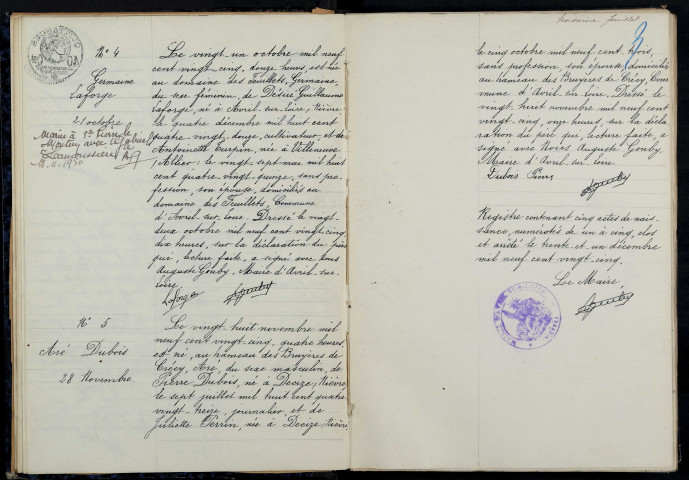 N° 4
Germaine
Laforge
21 octobre
Le vingt-un octobre mil neuf
cent vingt-cinq, douze heures, est née
au domaine des Feuillets, Germaine
du sexe féminin de Désiré Guillaume
Laforge, né à Avril-sur-Loire, Nièvre,
le quatre décembre mil huit cent
quatre-vingt-douze, cultivateur, et de
Antoinette Turpin, née à Villeneuve
Allier, le vingt-sept mai mil huit
cent quatre-vingt-quinze, sans pro-
fession, son épouse, domiciliés au
domaine des Feuillets, Commune
d'Avril-sur-Loire. Dressé le vingt-
deux octobre mil neuf cent vingt-cinq,
dix heures, sur la déclaration du père
qui, lecture faite, a signé avec Nous
Auguste Gouby, Maire d'Avril-sur-
Loire.
Laforge Gouby
N° 5
Aré Dubois
28 Novembre
Le vingt-huit novembre mil
neuf cent vingt-cinq, quatre heures,
est né, au hameau des Bruyères de
Crécy, Aré, du sexe masculin de
Pierre Dubois, né à Decize, Nièvre,
le sept juillet mil huit cent quatre
vingt-treize, journalier, et de
Juliette Perrin, née à Decize, Nièvre,
le cinq octobre mil neuf cent trois,
sans profession, son épouse, domiciliés
au hameau des Bruyères de Crécy, Com-
mune d'Avril-sur-Loire. Dressé le
vingt-huit novembre mil neuf cent
vingt-cinq, onze heures, sur la décla-
ration du père qui, lecture faite, a
signé avec Nous Auguste Gouby,
Maire d'Avril-sur-Loire.
Dubois Pierre
Gouby
Registre contenant cinq actes de nais-
sance, numérotés de un à cinq, clos
et arrêté le trente-et-un décembre
mil neuf cent vingt-cinq.
Le Maire
Gouby